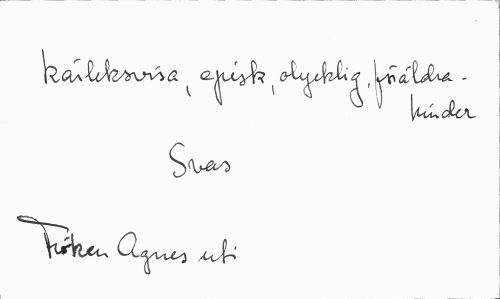 kärleksvisa, episk, olycklig, föräldra-
hinder
Svas
Fröken Agnes uti